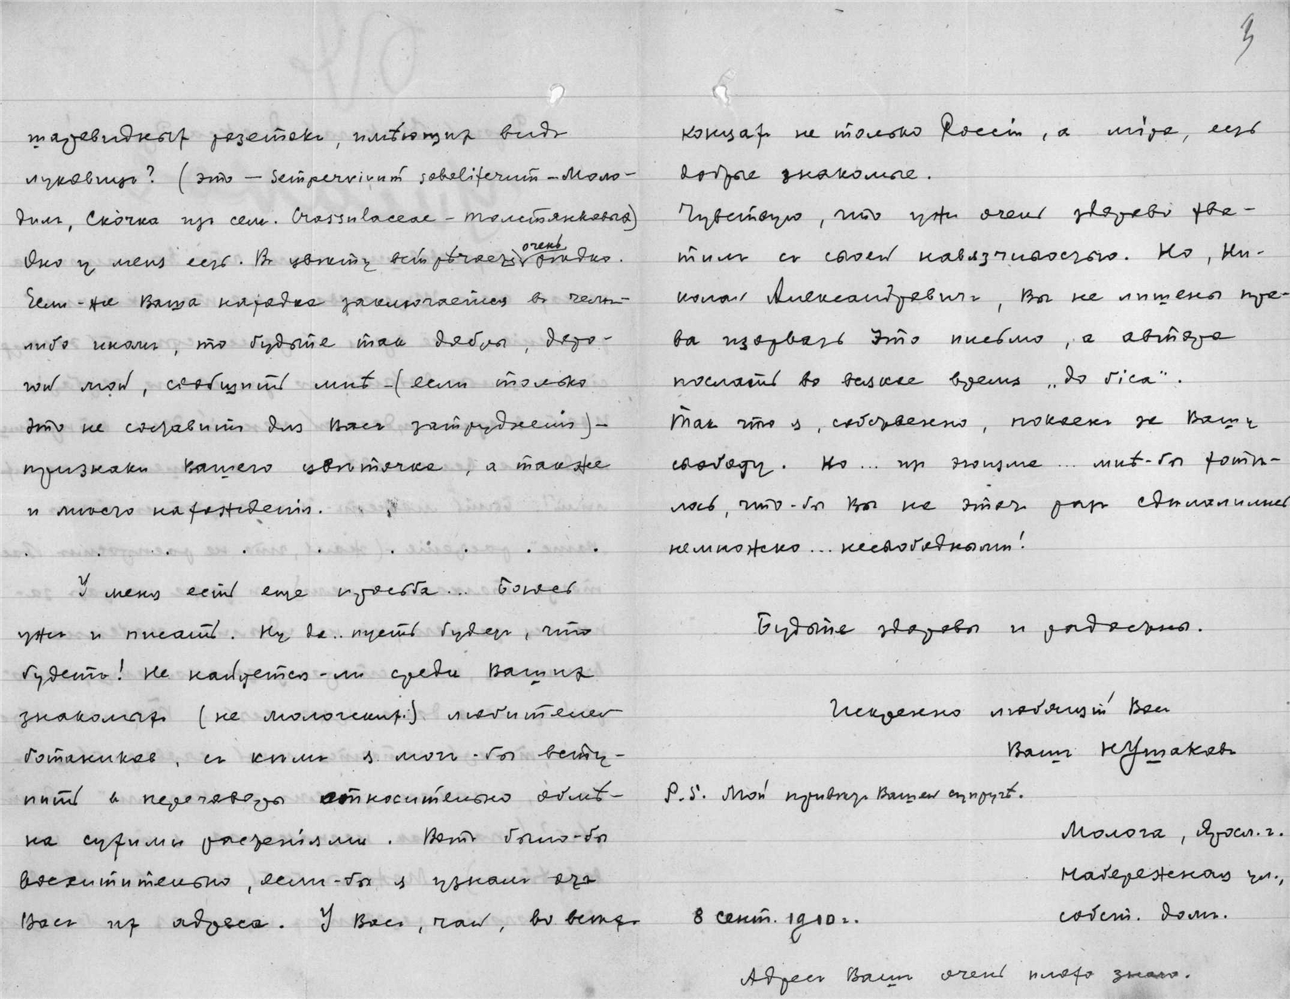 шаровидныхъ розетокъ, имѣющихъ видъ
луковицъ? (это — Sempervivum soboliferum — Моло-
дилъ, Скочка изъ сем. Crassulaceae — толстянковыхъ)
Оно у меня есть. Въ цвѣту встрѣчается очень рѣдко.
Если-же Ваша находка заключается въ чемъ-
либо иномъ, то будьте так добры, доро-
гой мой, сообщить мнѣ — (если только
это не составитъ для Васъ затрудненій) —
признаки Вашего цвѣточка, а также
и мѣсто нахожденія.
. . . . . . . . . .
У меня есть еще просьба... Боюсь
ужъ и писать. Ну да.. пусть будетъ, что
будетъ! Не найдется-ли среди Вашихъ
знакомыхъ (не мологскихъ) любителей
ботаниковъ, съ кѣмъ я могъ-бы всту-
пить въ переговоры относительно обмѣ-
на сухими растеніями. Вотъ было-бы
восхитительно, если-бы я узналъ отъ
Васъ ихъ адреса. У Васъ, чай, во всѣхъ
3
концахъ не только Россіи, а міра, есть
добрые знакомые.
Чувствую, что ужъ очень здорово хва-
тилъ съ своей навязчивостью. Но, Ни-
колай Александровичъ, Вы не лишены пра-
ва изорвать это письмо, а автора
послать во всякое время „до біса“.
Так что я, собственно, покоенъ за Вашу
свободу. Но... изъ эгоизма... мнѣ-бы хотѣ-
лось, что-бы Вы на этотъ разъ сдѣлались
немножко... несвободными!
Будьте здоровы и радостны.
Искренно любящій Васъ
Вашъ НУшаковъ
P.S. Мой привѣтъ Вашей супругѣ.
Молога, Яросл. г.
Набережная ул.,
собст. домъ.
8 сент. 1910 г.
Адресъ Вашъ очень плохо знаю.